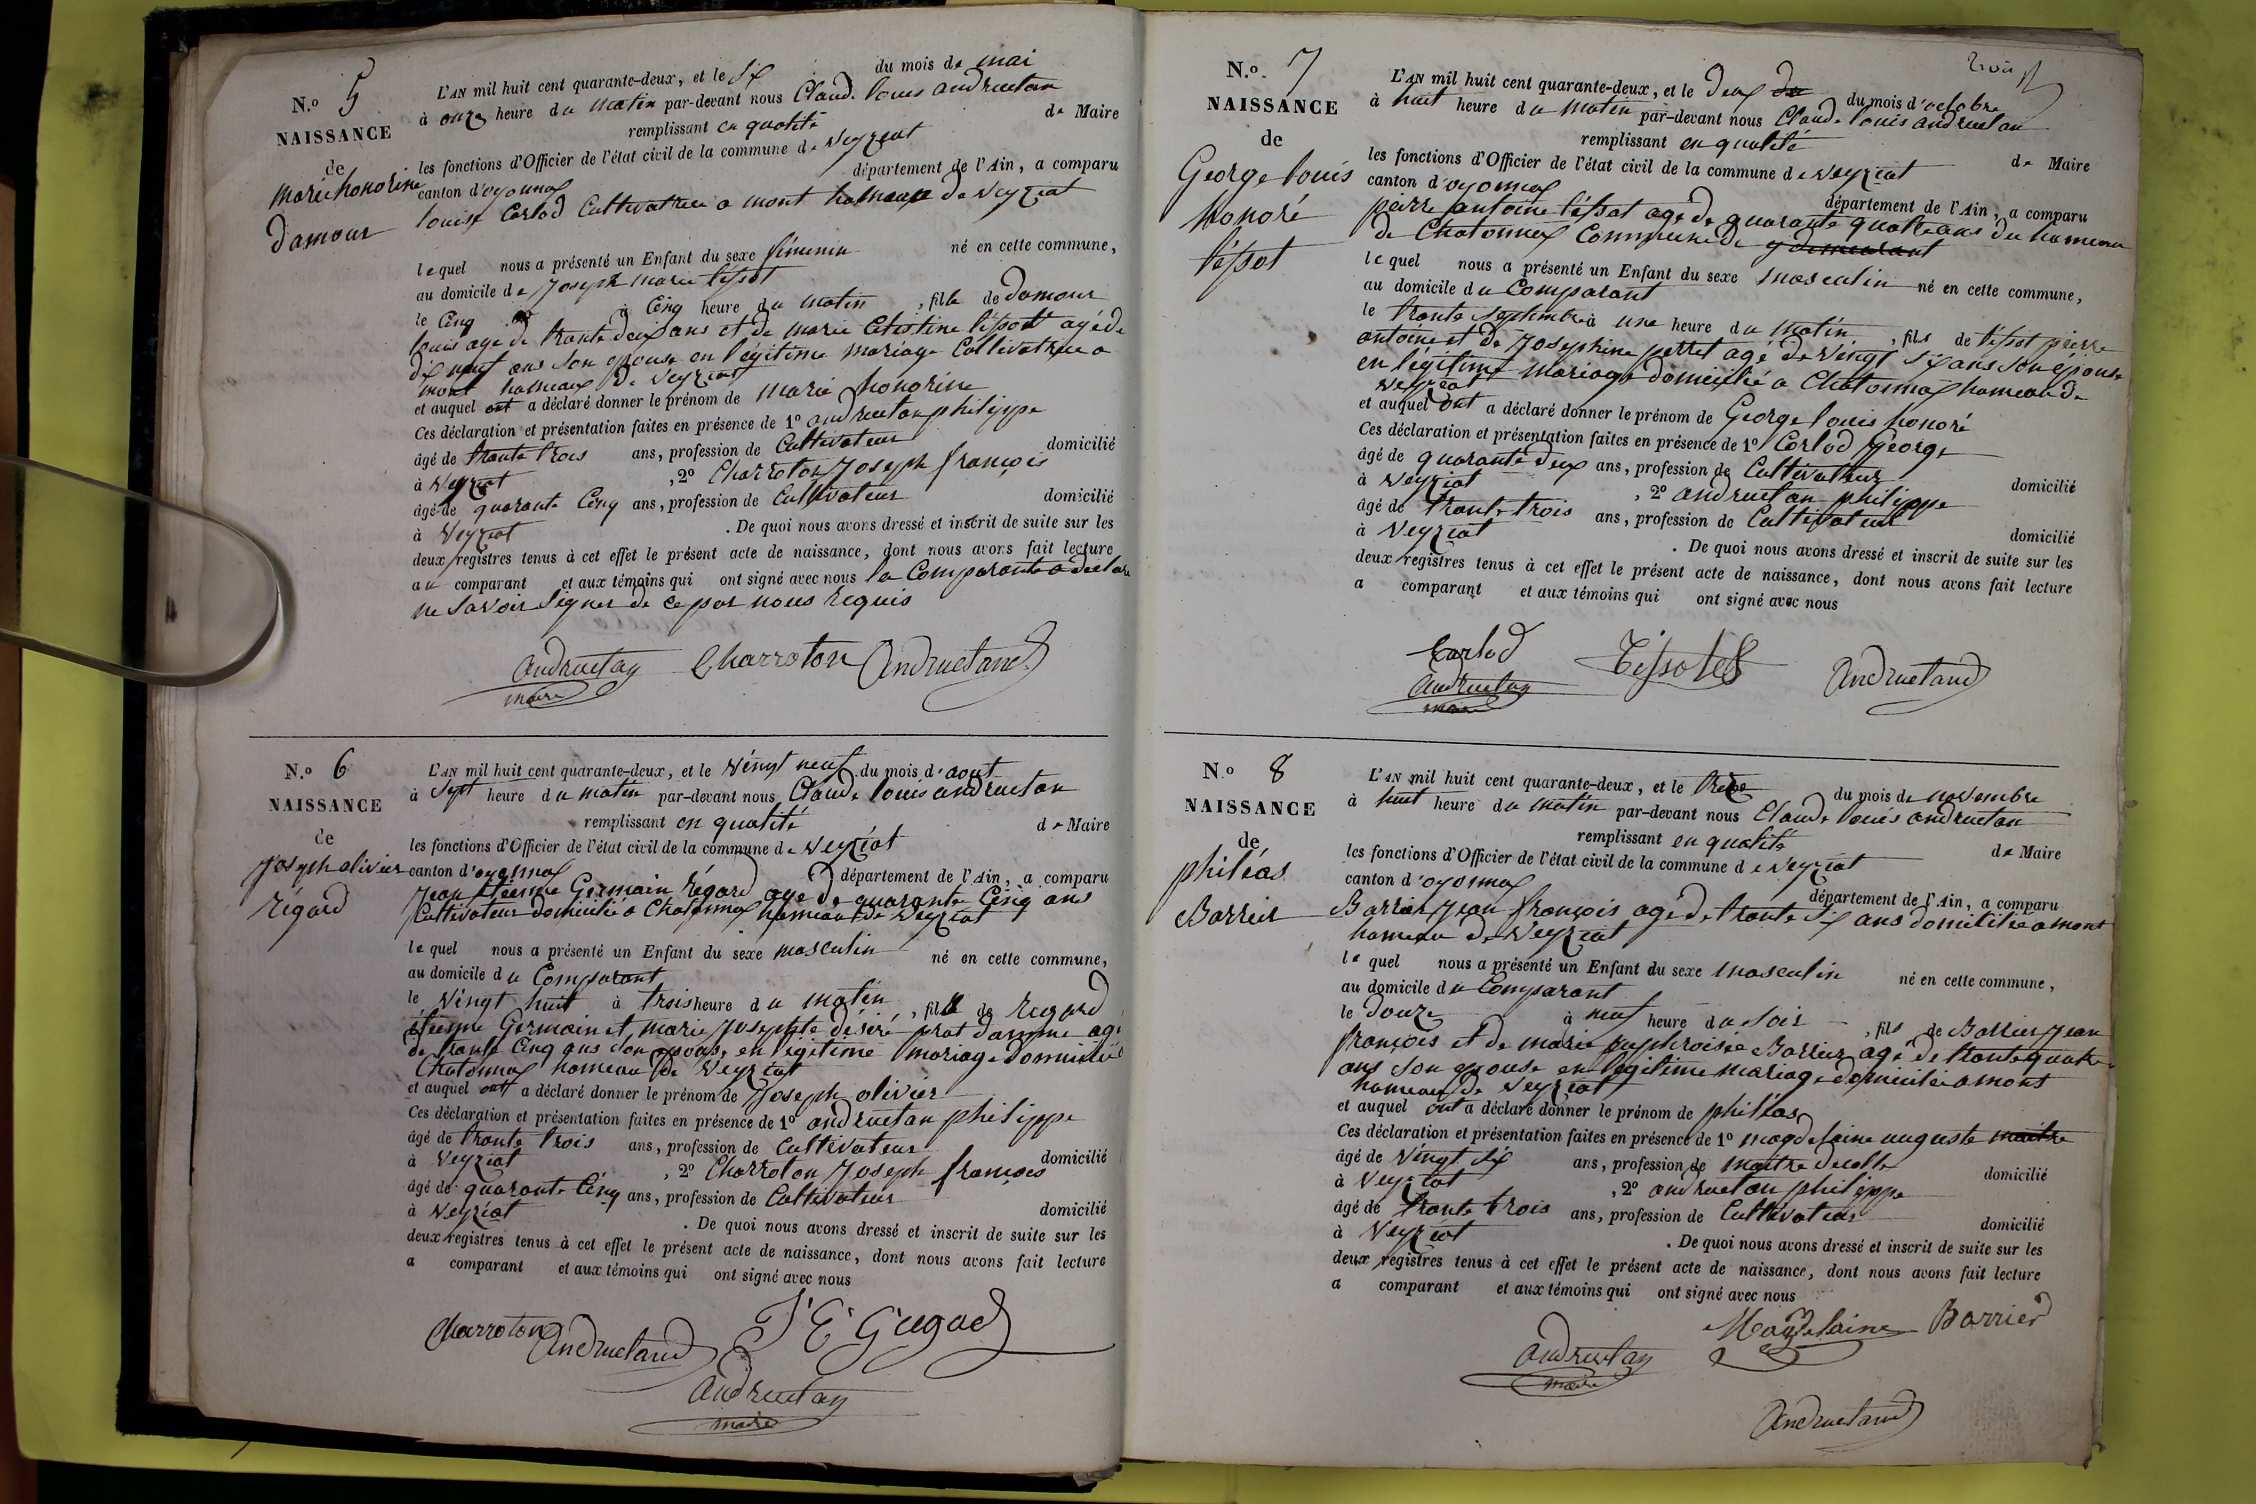 N.o 5
NAISSANCE
de
marie honorine
damour
L'AN mil huit cent quarante-deux, et le six du mois de mai
à onze heure du matin par-devant nous Claude louis andruetan
remplissant en qualité de Maire
les fonctions d'Officier de l'état civil de la commune de veyziat
canton d'oyonnax département de l'Ain, a comparu
louise Carlod Cultivatrice a mont hameaux de veyziat
lequel nous a présenté un Enfant du sexe féminin né en cette commune,
au domicile de Joseph marie tissot
le Cinq à Cinq heure du matin, fille de damour
louis agé de trante deux ans et de marie Celestine tissot agé de
dix neuf ans son epouse en légitime mariage Cultivatrice a
mont hameaux de veyziat
et auquel ont a déclaré donner le prénom de marie honorine
Ces déclaration et présentation faites en présence de 1o andruetan philippe
âgé de trante trois ans, profession de Cultivateur domicilié
à veyziat, 2o Charroton Joseph françois
âgé de quarante Cinq ans, profession de Cultivateur domicilié
à veyziat. De quoi nous avons dressé et inscrit de suite sur les
deux registres tenus à cet effet le présent acte de naissance, dont nous avons fait lecture
au comparant et aux témoins qui ont signé avec nous la Comparante a declare
ne savoir signer de ce par nous requis
andruetan Charroton andruetand
maire
N.o 6
NAISSANCE
de
Joseph olivier
régard
L'AN mil huit cent quarante-deux, et le vingt neuf du mois d'aout
à sept heure du matin par-devant nous Claude louis andruetan
remplissant en qualité de Maire
les fonctions d'Officier de l'état civil de la commune de veyziat
canton d'oyonnax département de l'Ain, a comparu
Jean étienne Germain régard agé de quarante Cinq ans
Cultivateur domicilié a Chatonnax hameau de veyziat
lequel nous a présenté un Enfant du sexe masculin né en cette commune,
au domicile du Comparant
le vingt huit à trois heure du matin, fils de regard
étienne Germain et marie Josephte désiré prat damme agé
de trante Cinq ans son epouse en légitime mariage domicilié
Chatonnax hameau de veyziat
et auquel ont a déclaré donner le prénom de Joseph olivier
Ces déclaration et présentation faites en présence de 1o andruetan philippe
âgé de trante trois ans, profession de Cultivateur domicilié
à veyziat, 2o Charroton Joseph françois
âgé de quarante Cinq ans, profession de Cultivateur domicilié
à veyziat. De quoi nous avons dressé et inscrit de suite sur les
deux registres tenus à cet effet le présent acte de naissance, dont nous avons fait lecture
a comparant et aux témoins qui ont signé avec nous
Charroton andruetand
andruetan
maire
N.o 7
NAISSANCE
de
George louis
honoré
tissot
trois
L'AN mil huit cent quarante-deux, et le deux du du mois d'octobre
à huit heure du matin par-devant nous Claude louis andruetan
remplissant en qualité de Maire
les fonctions d'Officier de l'état civil de la commune de veyziat
canton d'oyonnax département de l'Ain, a comparu
peirre antoine tissot agé de quarante quatre ans du hameau
de Chatonnex Commune de y demeurant
lequel nous a présenté un Enfant du sexe masculin né en cette commune,
au domicile du Comparant
le trante septembre à une heure du matin, fils de tissot peirre
antoine et de Josephine perret agé de vingt six ans son épouse
en légitime mariage domicilié a Chatonnax hameau de
veyziat
et auquel ont a déclaré donner le prénom de George louis honoré
Ces déclaration et présentation faites en présence de 1o Carlod George
âgé de quarante deux ans, profession de Cultivateur domicilié
à veyziat, 2o andruetan philippe
âgé de trante trois ans, profession de Cultivateur domicilié
à veyziat. De quoi nous avons dressé et inscrit de suite sur les
deux registres tenus à cet effet le présent acte de naissance, dont nous avons fait lecture
a comparant et aux témoins qui ont signé avec nous
Carlod Tissot andruetand
andruetan
maire
N.o 8
NAISSANCE
de
philéas
Barrier
L'AN mil huit cent quarante-deux, et le treize du mois de novembre
à huit heure du matin par-devant nous Claude louis andruetan
remplissant en qualité de Maire
les fonctions d'Officier de l'état civil de la commune de veyziat
canton d'oyonnax département de l'Ain, a comparu
Barrier Jean françois agé de trante six ans domicilié a mont
hameau de veyziat
lequel nous a présenté un Enfant du sexe masculin né en cette commune,
au domicile du Comparant
le douze à neuf heure du soir, fils de Barrier Jean
françois et de marie Barrier agé de trante quatre
ans son epouse en légitime mariage domicilié a mont
hameau de veyziat
et auquel ont a déclaré donner le prénom de philéas
Ces déclaration et présentation faites en présence de 1o magdelaine auguste maitre
âgé de vingt six ans, profession de maitre decolle domicilié
à veyziat, 2o andruetan philippe
âgé de trante trois ans, profession de Cultivateur domicilié
à veyziat. De quoi nous avons dressé et inscrit de suite sur les
deux registres tenus à cet effet le présent acte de naissance, dont nous avons fait lecture
a comparant et aux témoins qui ont signé avec nous
andruetan Magdelaine Barrier
maire
andruetand